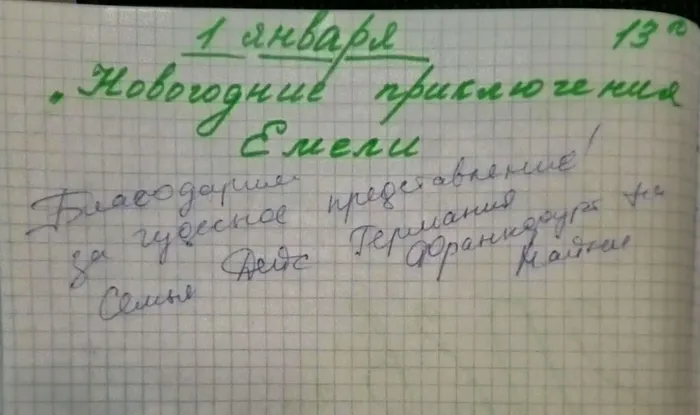 1 января 13°°
"Новогодние приключения
Емели
Благодарим
за чудесное представление!
Семья Германия Франкфурт на
Майне